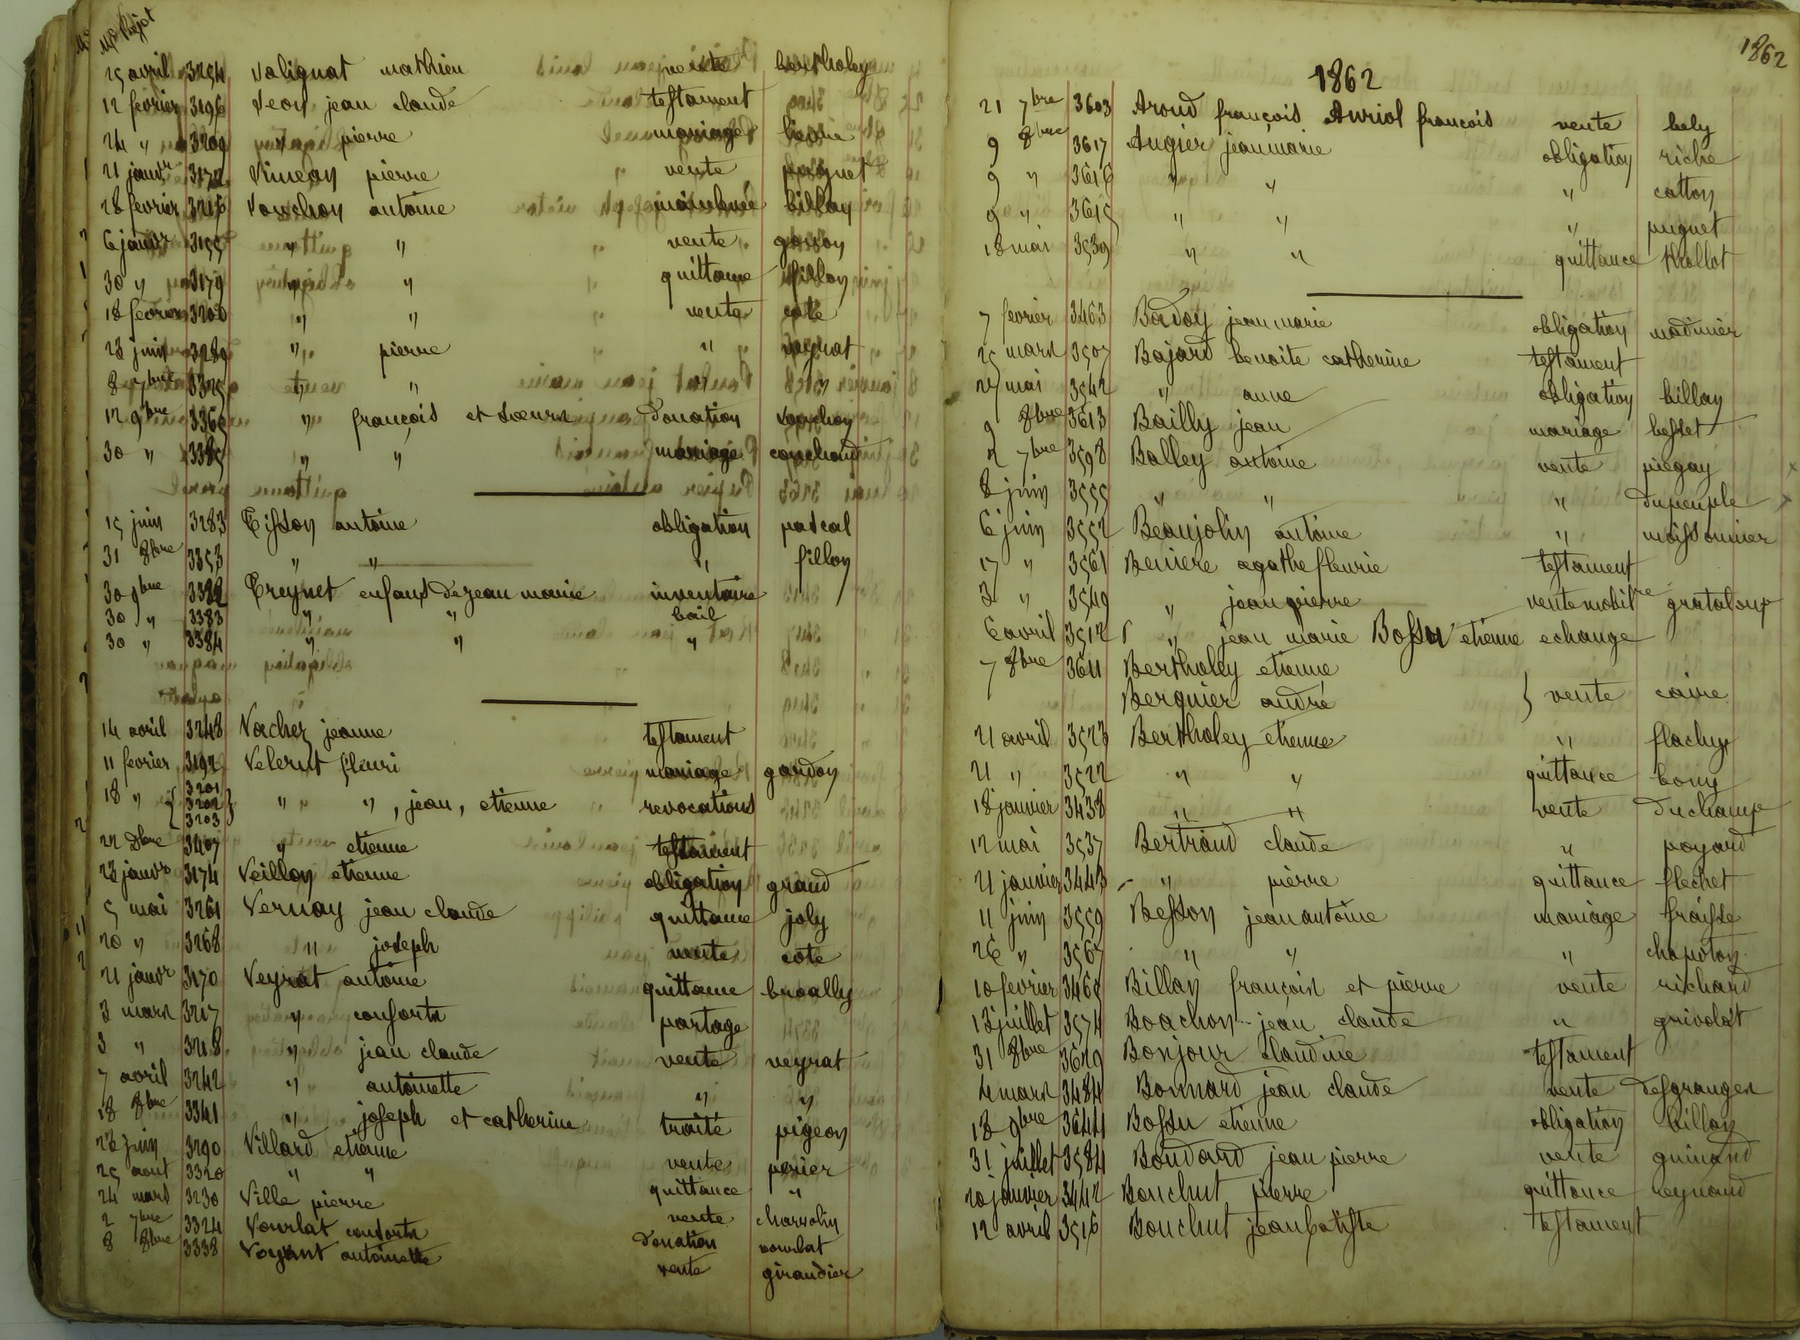 25 avril 3254 Valignat mathieu vente bertholey
12 fevrier 3196 Veoy jean claude testament
24 " 3209 " pierre mariage
21 janvr 3172 Vindry pierre vente
28 fevrier 3216 Voschon antoine billay
6 janvr 3155 " " vente
30 " 3179 " " quittance
18 fevrier 3200 " " vente cote
28 juin 3289 " pierre "
8 7bre 3325 " "
12 9bre 3365 " françois et soeurs donation
30 " 3385 " " mariage couchoud
15 juin 3283 Tisson antoine obligation pascal
31 8bre 3353 " " " fillon
30 9bre 3382 Treynet enfans de jean marie inventaire
30 " 3383 " " bail
30 " 3384 " " "
14 avril 3248 Vacher jeanne testament
11 fevrier 3192 Velerut fleuri mariage gandon
18 " 3201 3202 3203 " " ", jean, etienne revocations
22 Xbre 3407 " etienne testament
23 janvr 3174 Veillon etienne obligation graud
5 mai 3261 Vernay jean claude quittance joly
20 " 3268 " joseph vente cote
21 janvr 3170 Veyrat antoine quittance broally
3 mars 3217 " consorts partage
3 " 3218 " jean claude vente veyrat
7 avril 3242 " antoinette " "
18 8bre 3341 " joseph et catherine traité pigeon
28 juin 3290 Villard etienne vente perier
25 aout 3320 " " quittance "
24 mars 3230 Ville pierre vente charvolin
2 7bre 3324 Vourlat consorts donation vourlat
8 8bre 3338 Voyant antoinette vente giraudier
1862
1862
21 7bre 3603 Aroud françois Auriol françois vente boly
9 8bre 3617 Augier jean marie obligation riche
9 " 3616 " " " catton
9 " 3615 " " " puguet
18 mai 3539 " " quittance thollot
7 fevrier 3463 Badoy jean marie obligation madinier
25 mars 3507 Bajard benoite catherine testament
27 mai 3542 " anne obligation billay
9 8bre 3613 Bailly jean mariage besset
2 7bre 3598 Balley antoine vente piegay
8 juin 3555 " " " dupeuple
6 juin 3552 Beaujolin antoine " moissonnier
17 " 3561 Beniere agathe fleurie testament
3 " 3549 " jean pierre vente mobilre grataloup
6 avril 3512 " jean marie Bossu etienne echange
7 8bre 3611 Bertholey etienne
Berquier andré } vente caire
21 avril 3523 Bertholey etienne " flachy
21 " 3522 " " quittance bony
18 janvier 3438 " " vente duchamp
12 mai 3537 Bertrand claude " poyard
21 janvier 3443 " pierre quittance flechet
11 juin 3559 Besson jean antoine mariage fraisse
26 " 3567 " " " chapoton
10 fevrier 3465 Billay françois et pierre vente richard
18 juillet 3574 Boachon jean claude " grivolat
31 8bre 3629 Bonjour claudine testament
4 mars 3484 Bonnard jean claude vente desgranges
18 9bre 3644 Bossu etienne obligation billay
31 juillet 3584 Boudard jean pierre vente guinand
20 janvier 3442 Bouchut pierre quittance reynaud
12 avril 3516 Bouchut jean batiste testament